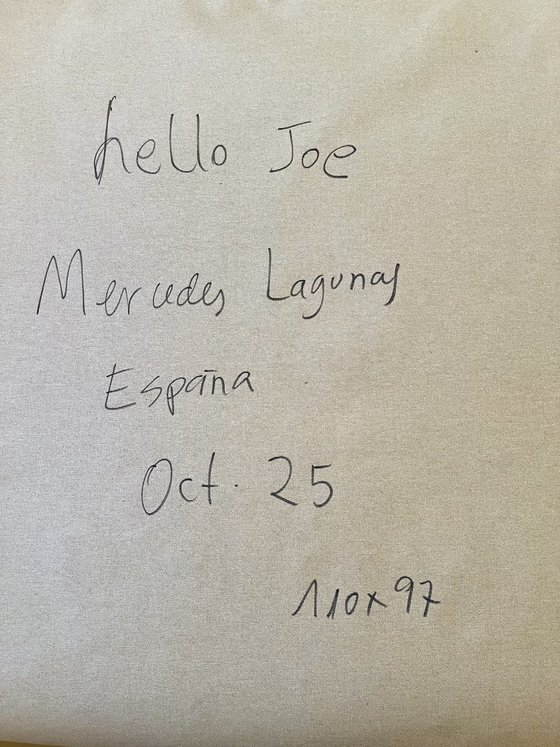 hello Joe
Mercedes Lagunas
España
Oct. 25
110x97